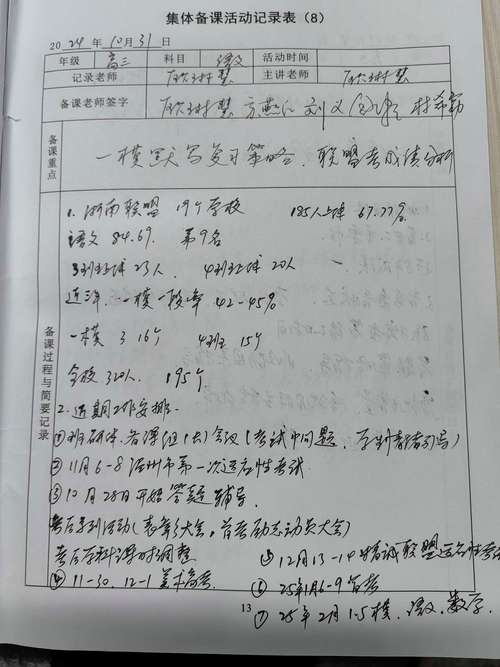 集体备课活动记录表（8）
2024年10月31日
年级 高三 科目 语文 活动时间
记录老师 主讲老师
备课老师签字
备课重点 一模 复习策略、联盟考成绩分析
备课过程与简要记录
1. 浙南联盟 19个学校 185人上线 67.77%
语文 84.69. 第9名
3班上线23人. 4班上线20人
近三年. 一模一段率 42-45%
一模 3 16个 4班 15个
全校320人. 195个.
2. 近期工作安排.
①班研体.备课组1次会议(考试中问题.学科素养引导)
②11月6-8温州市第一次适应性考试
③10月28日开始答疑辅导.
考后系列活动(表彰大会,首考励志动员大会)
考后学科课时调整
④11-30. 12-1美术高考.
⑤12月13-14精诚联盟适应性考试
⑥25年1月6-9首考
⑦25年2月1.5模.语文.数学.
13